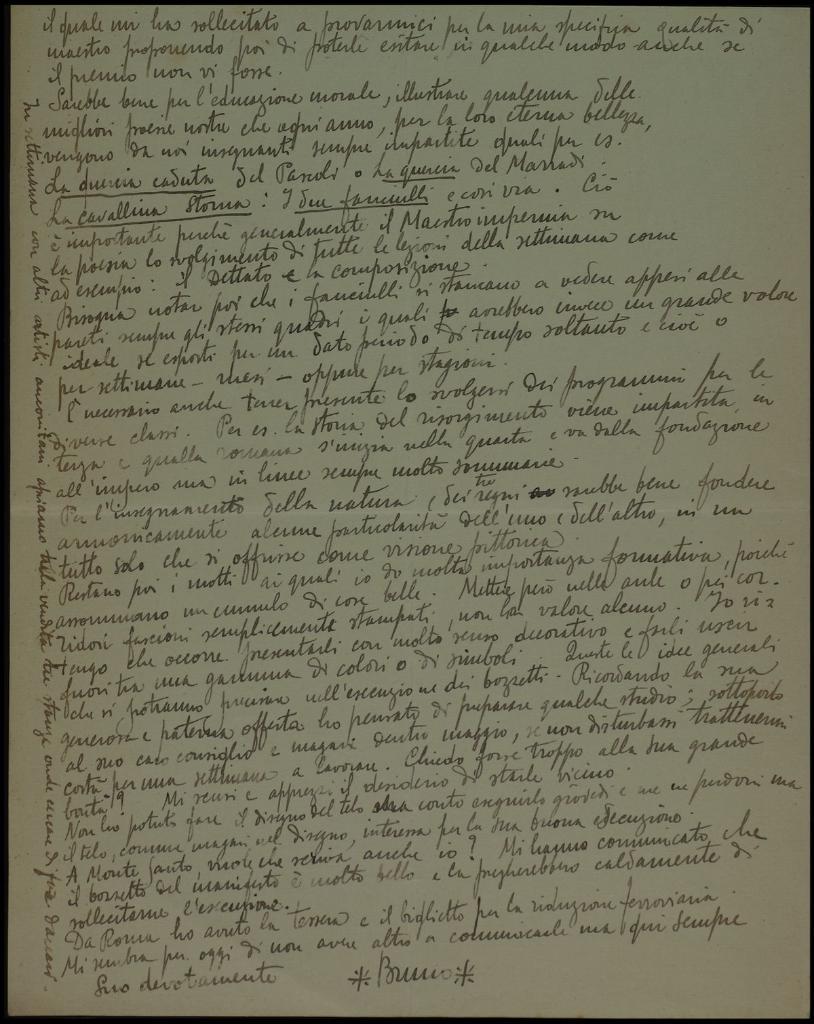 il quale mi ha sollecitato a provarmici per la mia specifica qualità di
maestro proponendo poi di poterle esitare in qualche modo anche se
il premio non vi fosse.
Sarebbe bene per l'educazione morale, illustrare qualcuna delle
migliori poesie nostre che ogni anno, per la loro eterna bellezza,
vengono da noi insegnanti sempre impartite quali per es.
La quercia caduta del Pascoli o La quercia del Marradi.
La cavallina storna: I due fanciulli e così via. Ciò
è importante perchè generalmente il Maestro impernia su
la poesia lo svolgimento di tutte le lezioni della settimana come
ad esempio: il Dettato e la composizione.
Bisogna notar poi che i fanciulli si stancano a vedere appesi alle
pareti sempre gli stessi quadri i quali avrebbero invece un grande valore
ideale se esposti per un dato periodo di tempo soltanto e cioè o
per settimane - mesi - oppure per stagioni.
È necessario anche tener presente lo svolgersi dei programmi per le
diverse classi. Per es. la storia del risorgimento viene impartita in
terza e quella romana s'inizia nella quarta e va dalla fondazione
all'impero ma in linee sempre molto sommarie.
Per l'insegnamento della natura, dei tre regni sarebbe bene fondere
armonicamente alcune particolarità dell'uno e dell'altro, in un
tutto solo che si offrisse come visione pittorica.
Restano poi i motti ai quali io do molta importanza formativa, poichè
assommano un cumulo di cose belle. Mettere però nelle aule o pei cor-
ridori fascioni semplicemente stampati, non ha valore alcuno. Io ri=
tengo che occorre presentarli con molto senso decorativo e farli uscir
fuori tra una gamma di colori o di simboli. Queste le idee generali
che si potranno precisare nell'esecuzione dei bozzetti. Ricordando la sua
generosa e paterna offerta ho pensato di preparare qualche studio; sottoporlo
al suo caro consiglio e magari dentro maggio, se non disturbassi trattenermi
costà per una settimana a lavorare. Chiedo forse troppo alla sua grande
bontà? Mi scusi e apprezzi il desiderio di starle vicino.
Non ho potuto fare il disegno del telo ma conto eseguirlo giovedì e me ne perdoni ma
il telo, comune magari nel disegno, interessa per la sua buona esecuzione.
A Monte Santo, vuole che scriva anche io? Mi hanno comunicato che
il bozzetto del manifesto è molto bello e la pregherebbero caldamente di
sollecitarne l'esecuzione.
Da Roma ho avuto la tessera e il biglietto per la riduzione ferroviaria.
Mi sembra per oggi di non avere altro a comunicarle ma qui sempre
Suo devotamente * Bruno *
In settimana con altri artisti anconitani apriamo vendita tre stanze onde cercare di far danari.